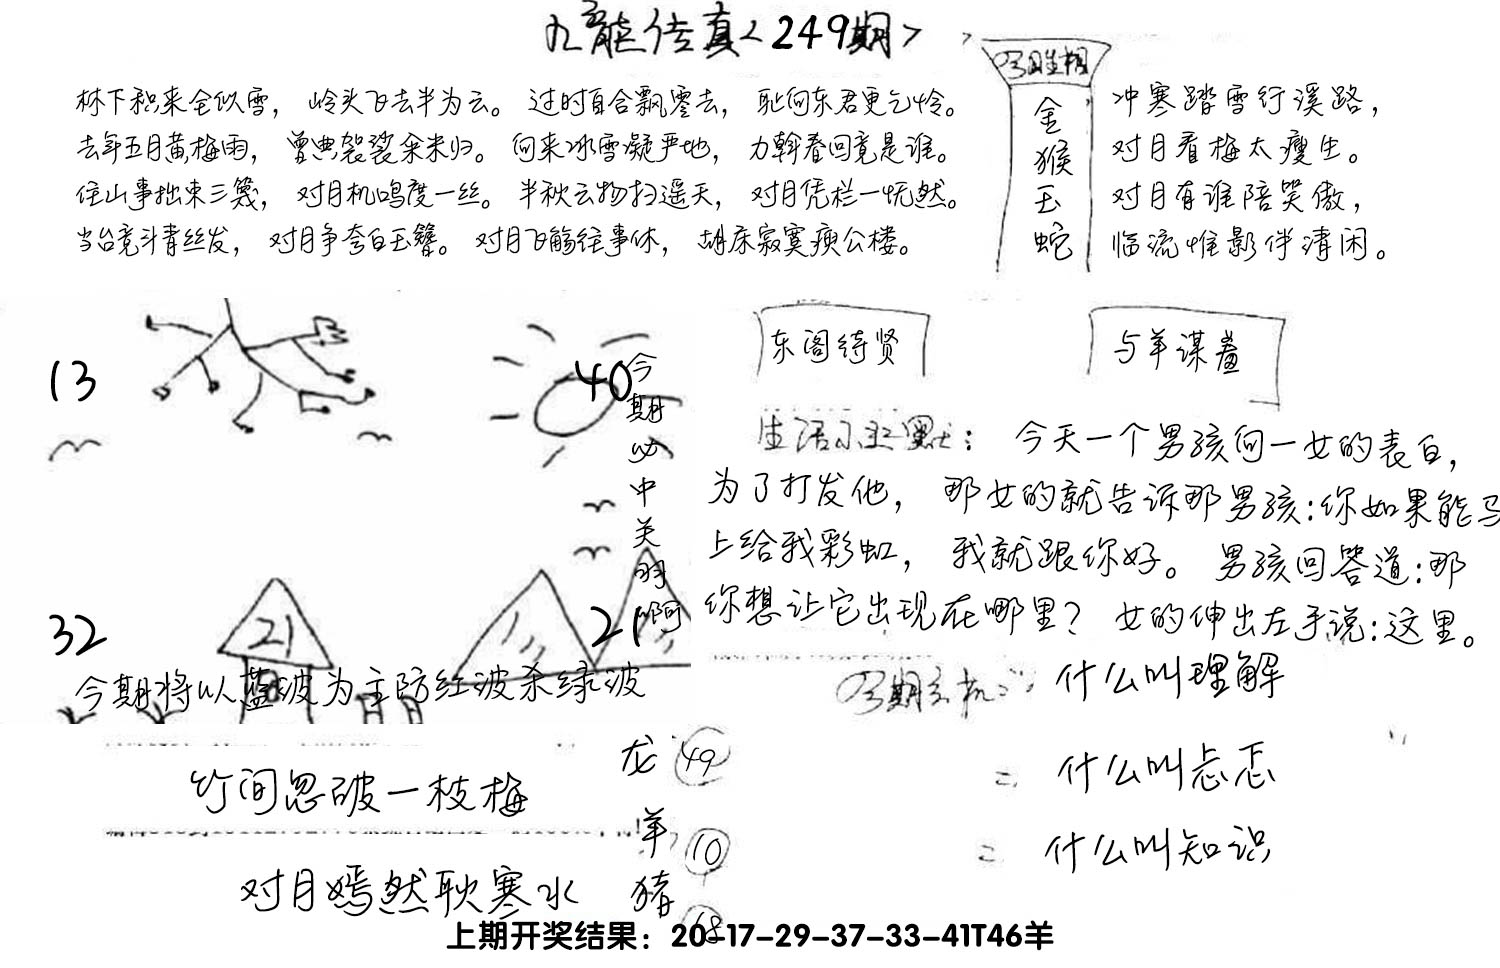 九龙传真<249期>
林下积来全似雪，岭头飞去半为云。过时自合飘零去，耻向东君更乞怜。
去年五月黄梅雨，曾典袈裟籴米归。向来冰雪凝严地，力斡春回竟是谁。
住山事拙束三篾，对月机鸣度一丝。半秋云物扫遥天，对月凭栏一怃然。
当台竞斗青丝发，对月争夸白玉簪。对月飞觞往事休，胡床寂寞庾公楼。
金
猴
玉
蛇
冲寒踏雪行溪路，
对月看梅太瘦生。
对月有谁陪笑傲，
临流惟影伴清闲。
13
40
32
21
21
今期必中关羽啊
今期将以蓝波为主防红波杀绿波
东阁待贤
与羊谋羞
生活小幽默：今天一个男孩向一女的表白，
为了打发他，那女的就告诉那男孩:你如果能马
上给我彩虹，我就跟你好。男孩回答道:那
你想让它出现在哪里？女的伸出左手说:这里。
什么叫理解
二 什么叫忐忑
二 什么叫知识
竹间忽破一枝梅
对月嫣然耿寒水
龙 49
羊 10
猪 18
上期开奖结果：20-17-29-37-33-41T46羊